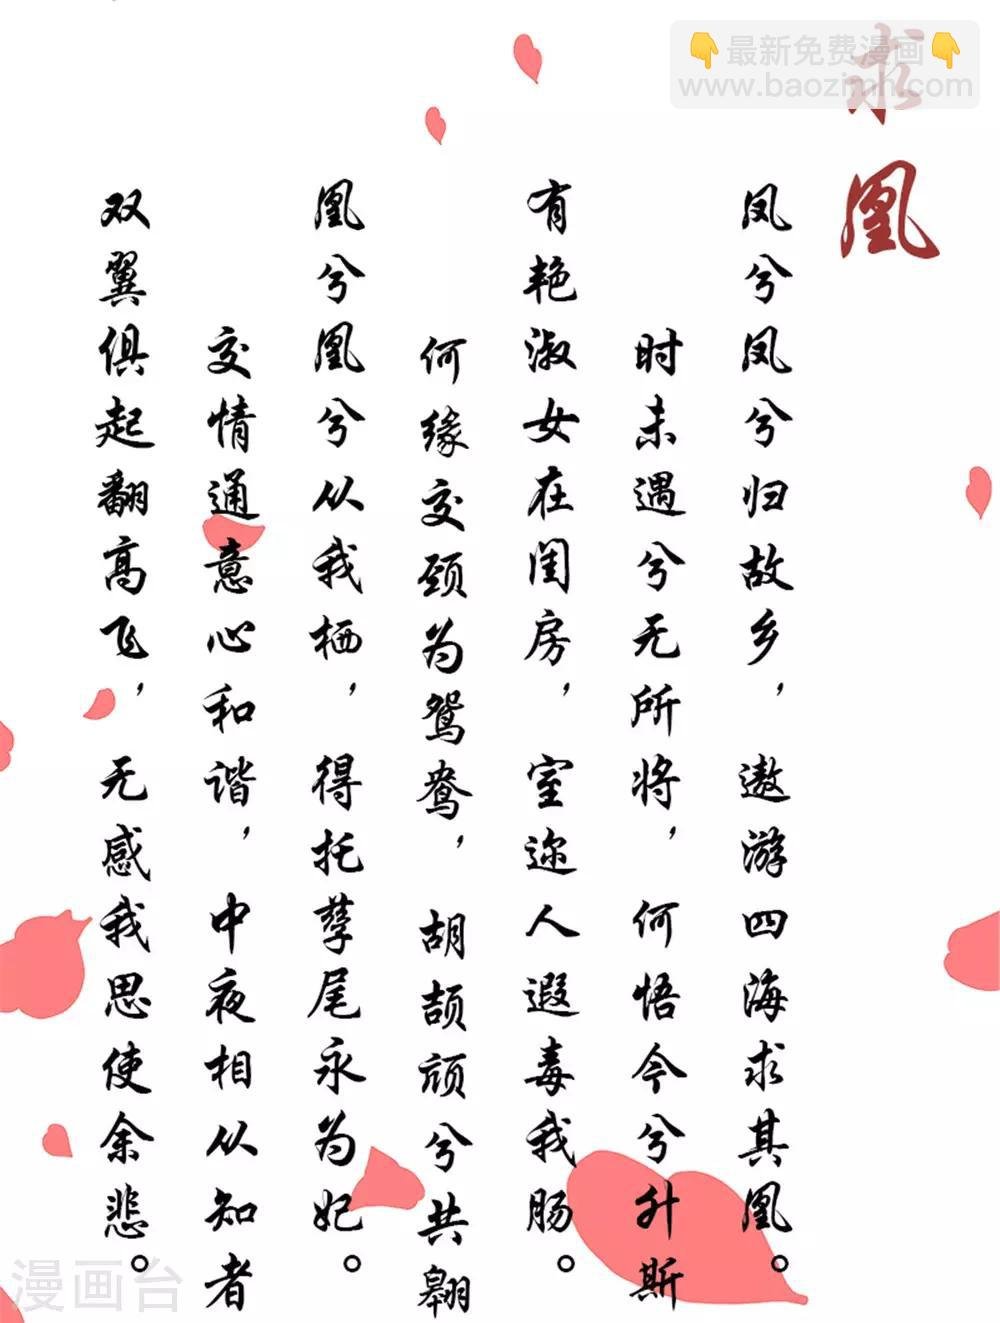 求凰
凤兮凤兮归故乡，遨游四海求其凰。
时未遇兮无所将，何悟今兮升斯
有艳淑女在闺房，室迩人遐毒我肠。
何缘交颈为鸳鸯，胡颉颃兮共翱
凰兮凰兮从我栖，得托孳尾永为妃。
交情通意心和谐，中夜相从知者
双翼俱起翻高飞，无感我思使余悲。
👇最新免费漫画👇
www.baozimh.com
漫画台